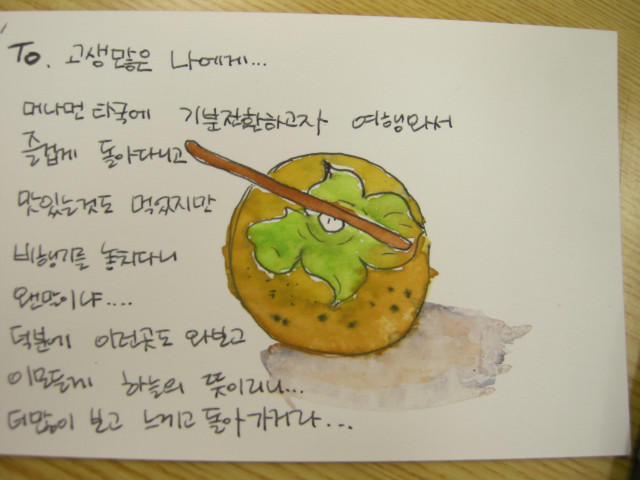 To. 고생많은 나에게...
머나먼 타국에 기분전환하고자 여행와서
즐겁게 돌아다니고
맛있는것도 먹었지만
비행기를 놓치다니
왠말이냐....
덕분에 이런곳도 와보고
이모든게 하늘의 뜻이리니...
더많이 보고 느끼고 돌아가거라...